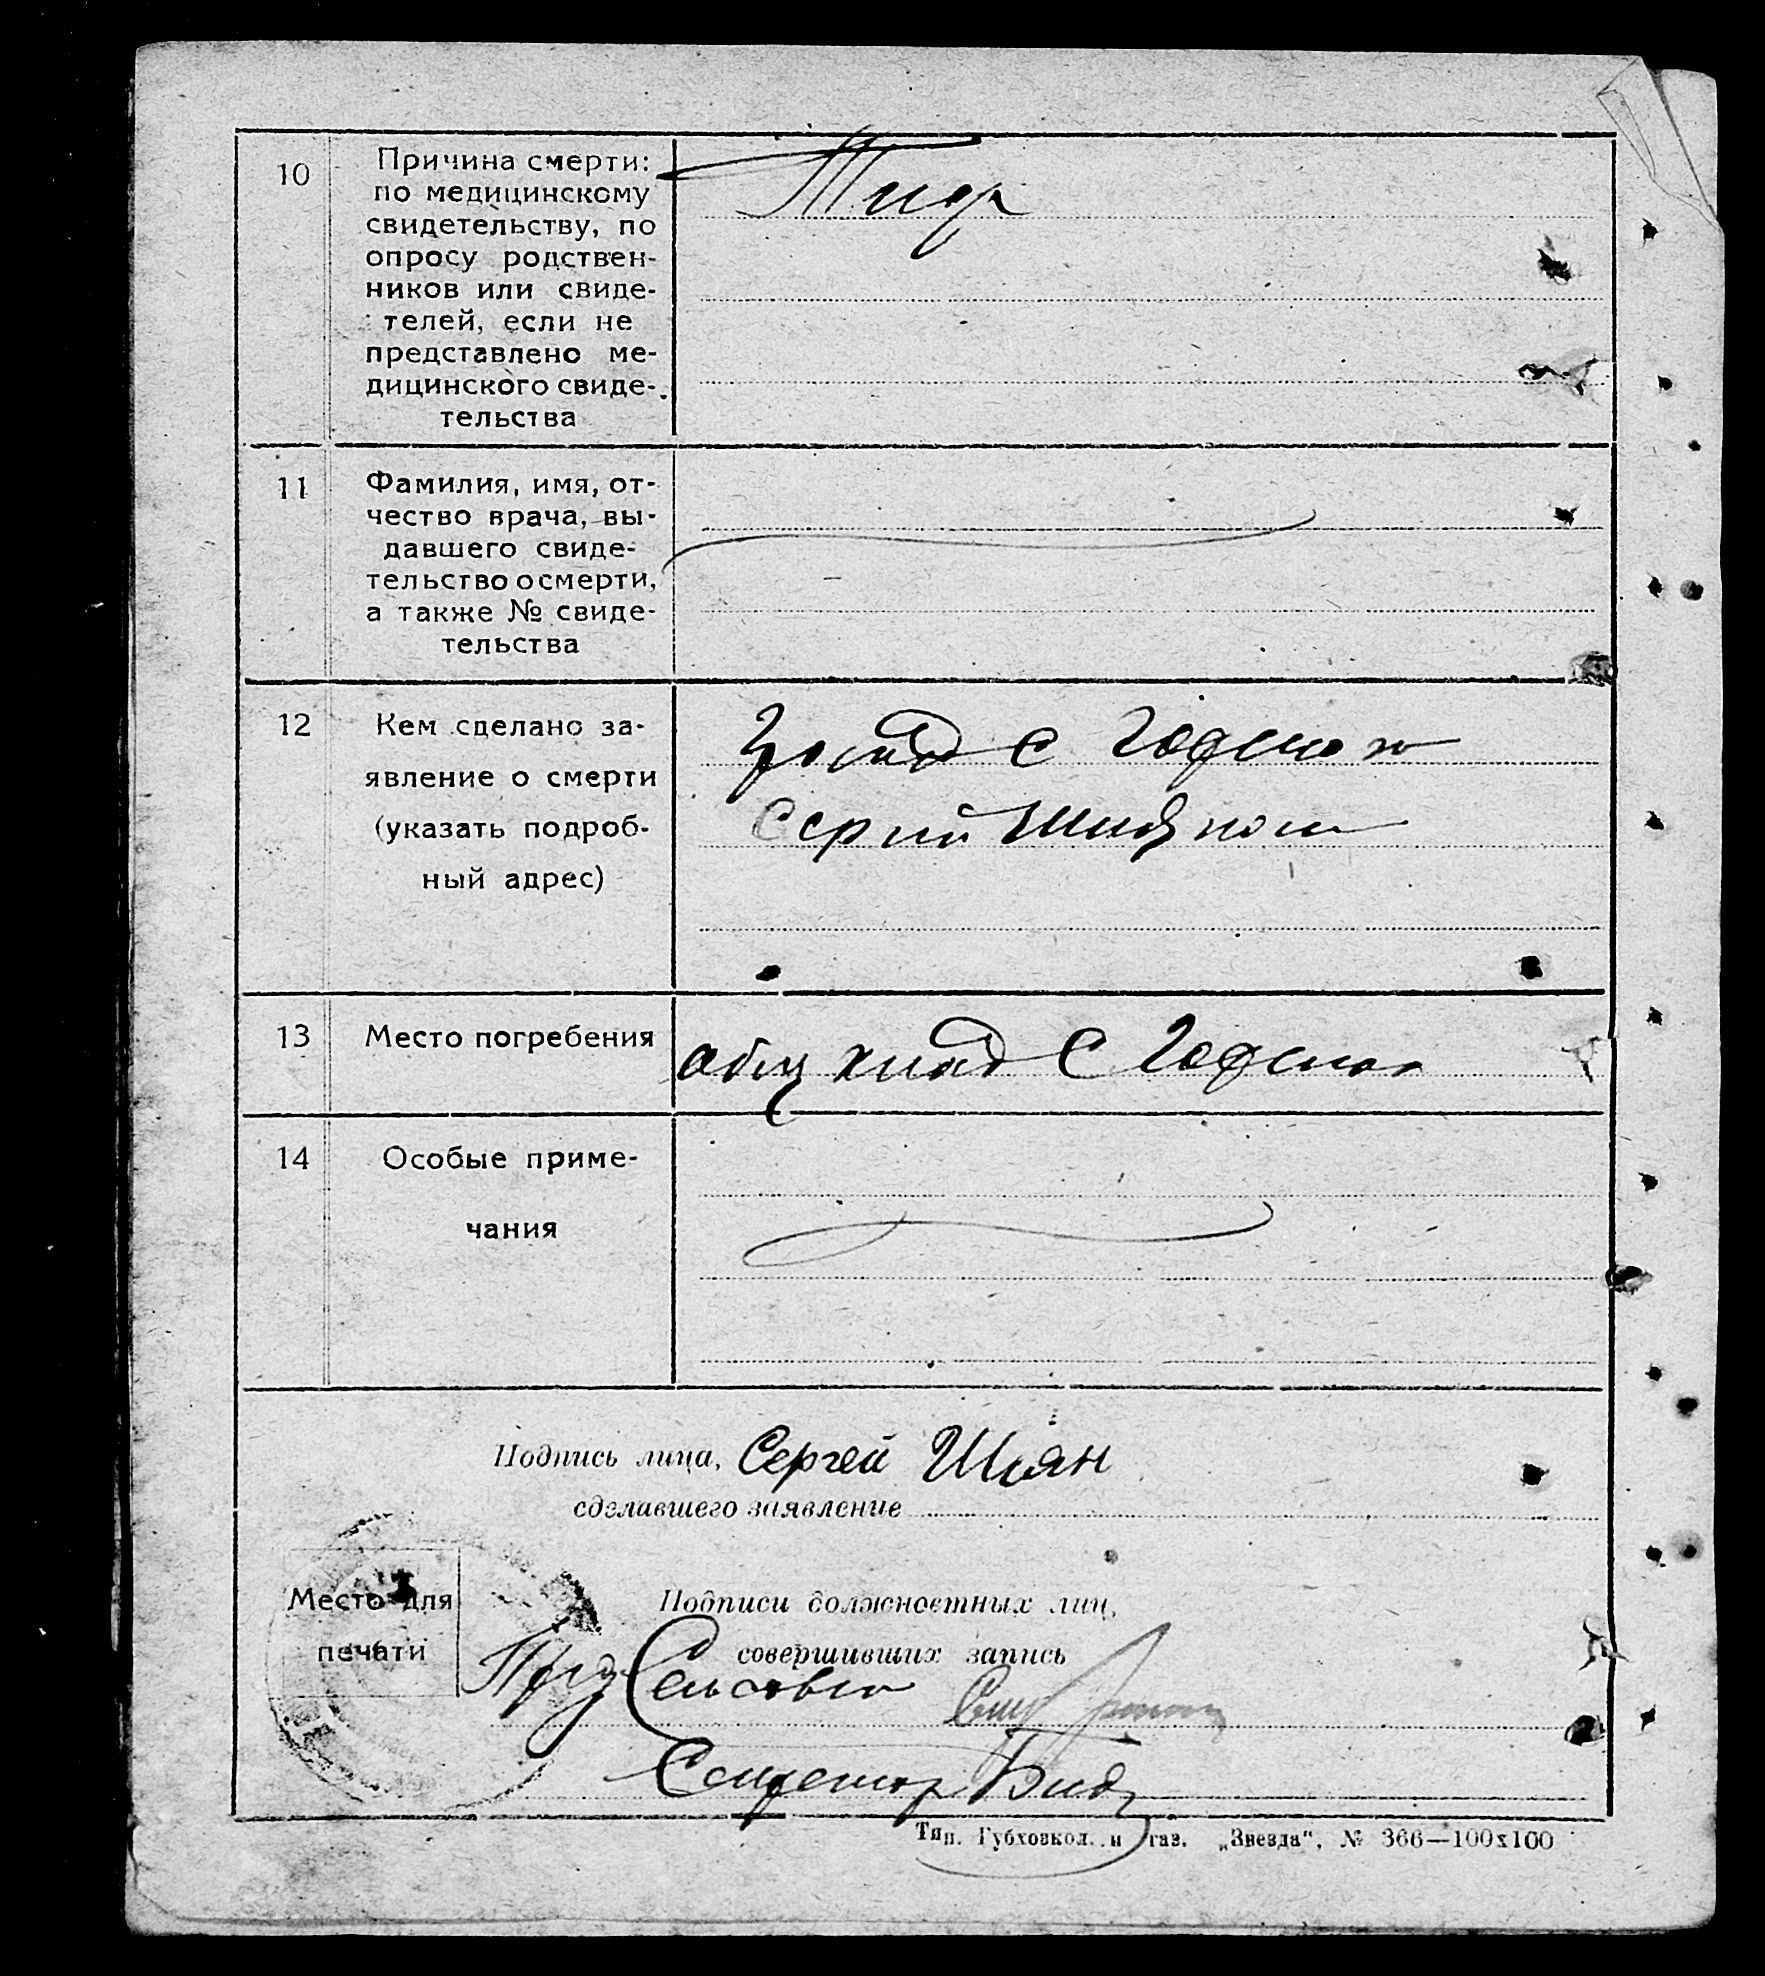 10
Причина смерти:
по медицинскому
свидетельству, по
опросу родствен-
ников или свиде-
телей, если не
представлено ме-
дицинского свиде-
тельства
Тиф
11
Фамилия, имя, от-
чество врача, вы-
давшего свиде-
тельство о смерти,
а также № свиде-
тельства
12
Кем сделано за-
явление о смерти
(указать подроб-
ный адрес)
с
13
Место погребения
общ клад с
14
Особые приме-
чания
Подпись лица, Сергей Шиян
сделавшего заявление
Место для
печати
Подписи должностных лиц,
совершивших запись
Пред Сельсовета
Секретар
Тип. Губхозкол. и газ. „Звезда“, № 366—100х100